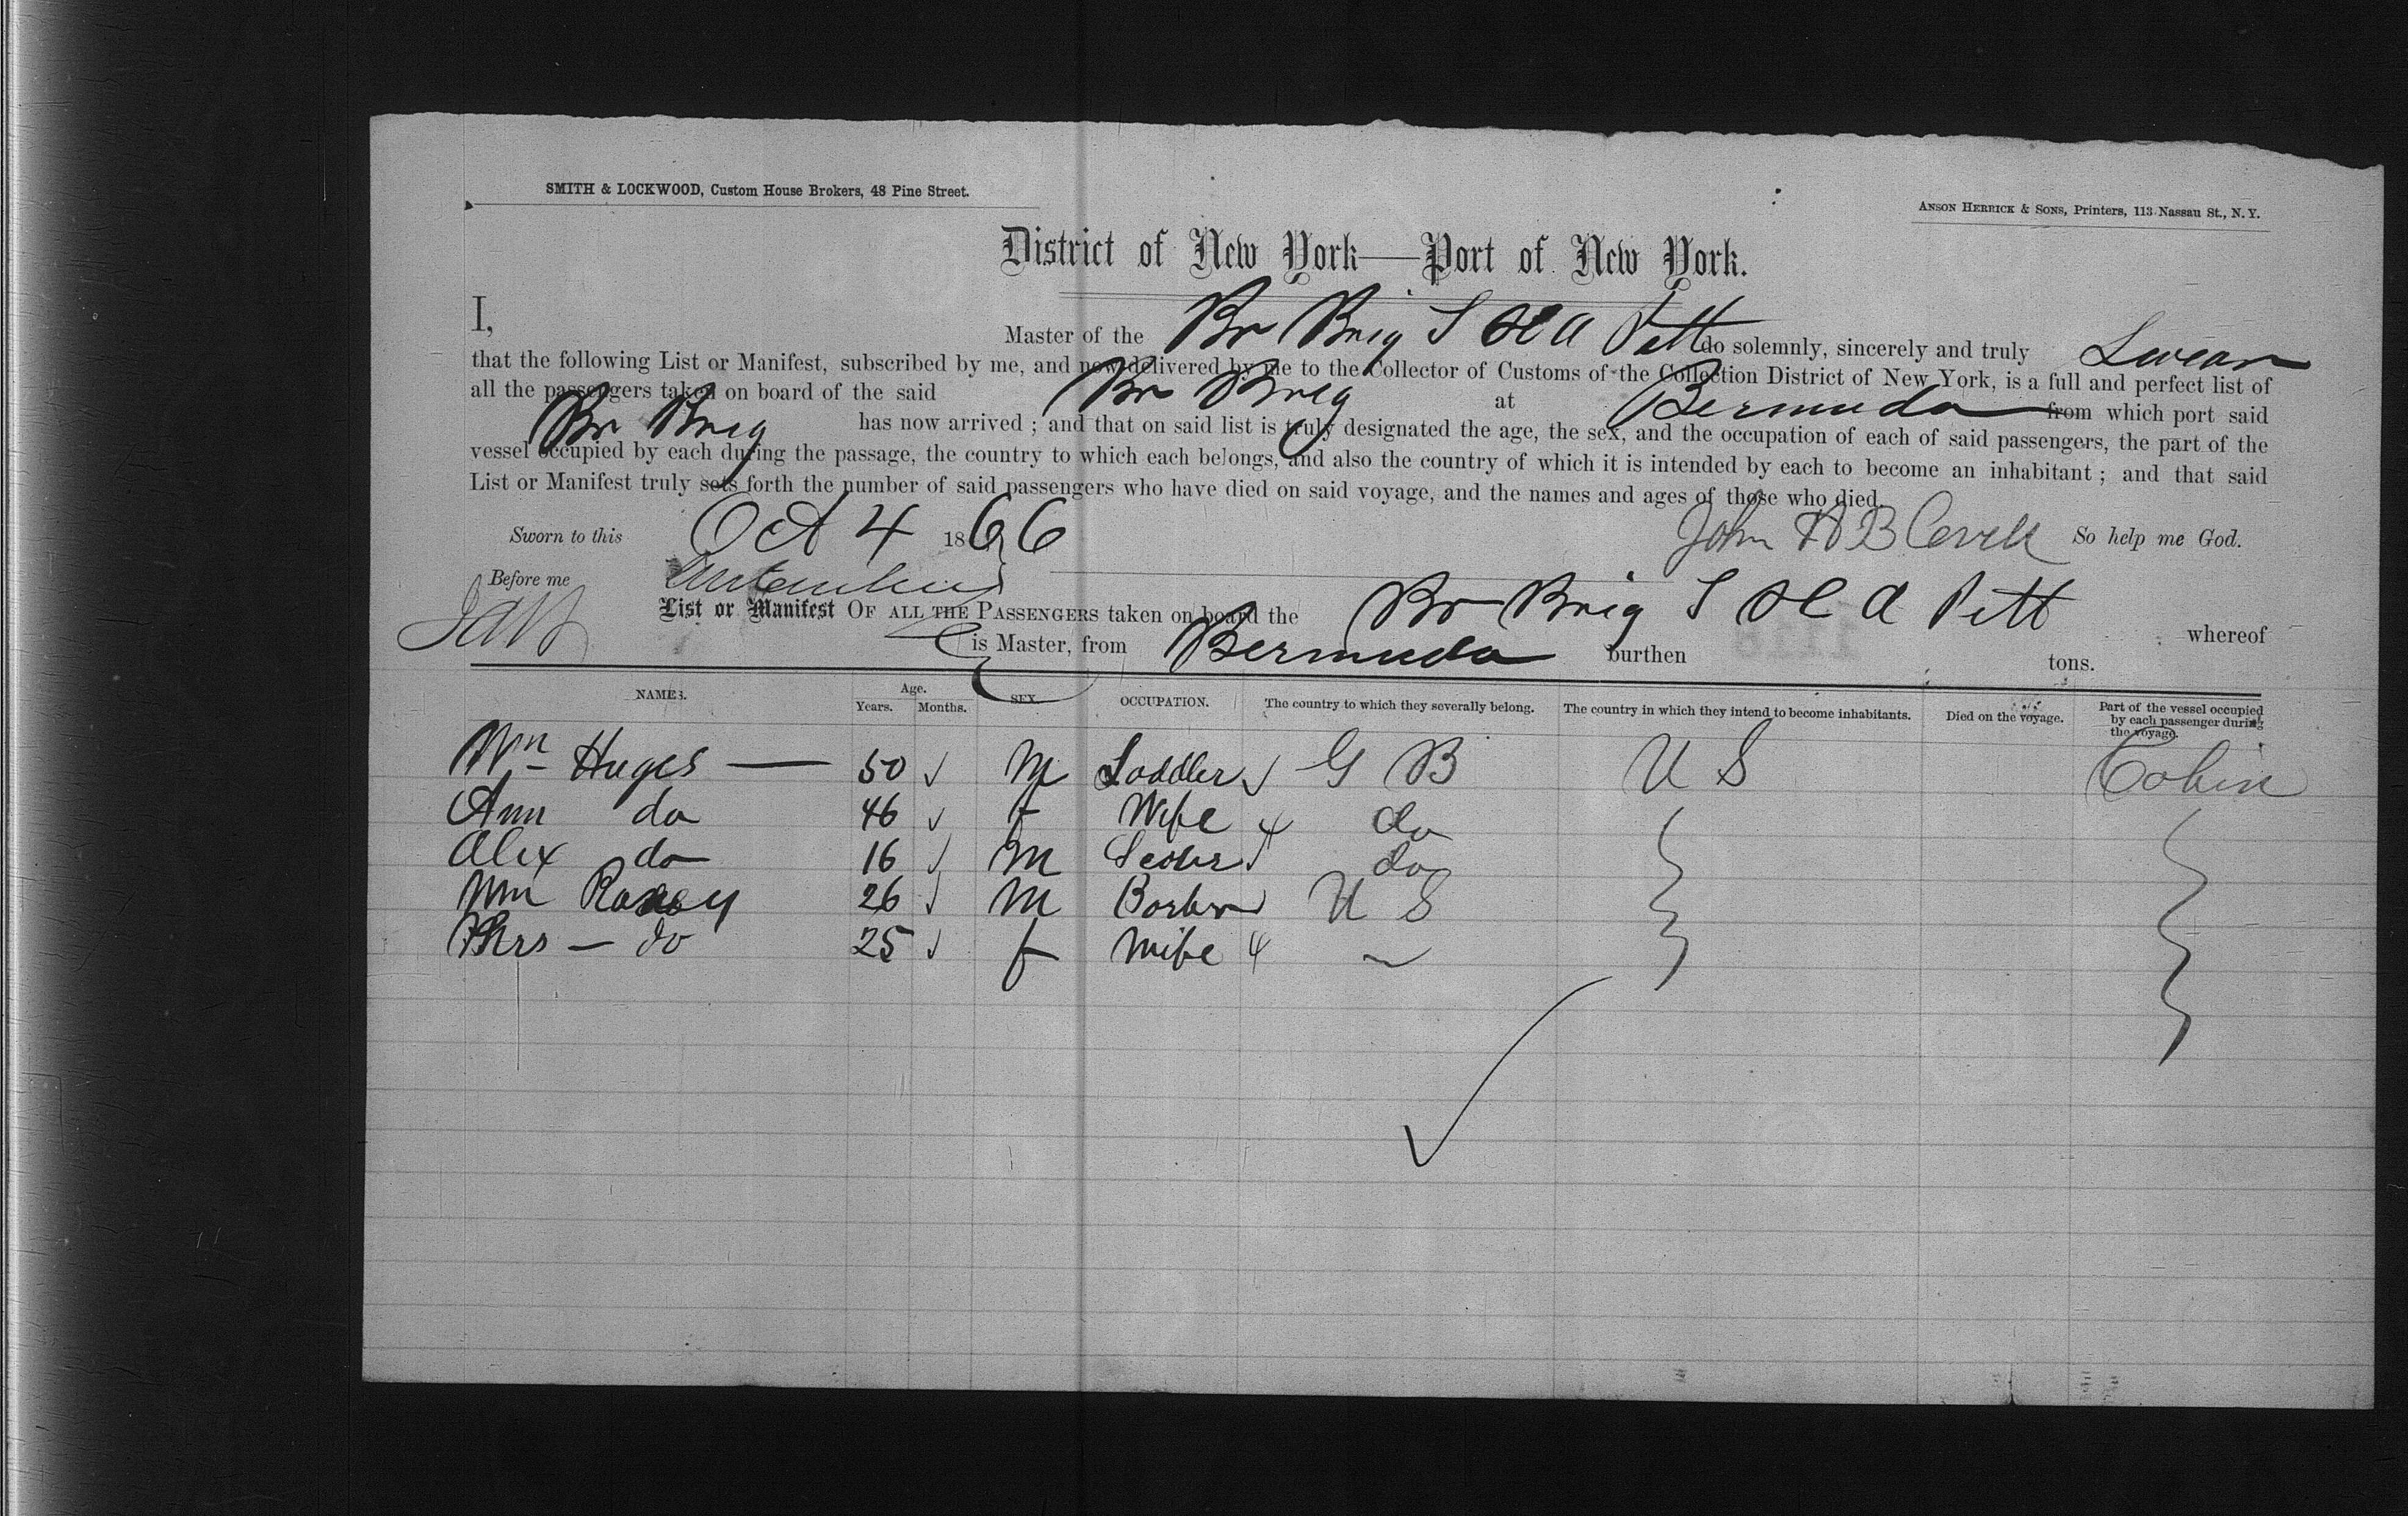 SMITH & LOCKWOOD, Custom House Brokers, 48 Pine Street.
ANSON HERRICK & SONS, Printers, 113 Nassau St., N. Y.
District of New York—Port of New York.
I, Master of the Br Brig T & A Pitt do solemnly, sincerely and truly Swear
that the following List or Manifest, subscribed by me, and now delivered by me to the Collector of Customs of the Collection District of New York, is a full and perfect list of
all the passengers taken on board of the said Br Brig at Bermuda from which port said
Br Brig has now arrived ; and that on said list is truly designated the age, the sex, and the occupation of each of said passengers, the part of the
vessel occupied by each during the passage, the country to which each belongs, and also the country of which it is intended by each to become an inhabitant ; and that said
List or Manifest truly sets forth the number of said passengers who have died on said voyage, and the names and ages of those who died.
Sworn to this Oct 4 1866 John So help me God.
Before me
List or Manifest OF ALL THE PASSENGERS taken on board the Br Brig Pitt whereof
is Master, from Bermuda burthen tons.
NAMES. Age. Years. Months. SEX. OCCUPATION. The country to which they severally belong. The country in which they intend to become inhabitants. Died on the voyage. Part of the vessel occupied by each passenger during the voyage.
Wm Huges — 50 M Saddler G B U S Cabin
Ann do 46 f Wife do
Alex do 16 M do
Wm 26 M U S
Mrs — do 25 f Wife